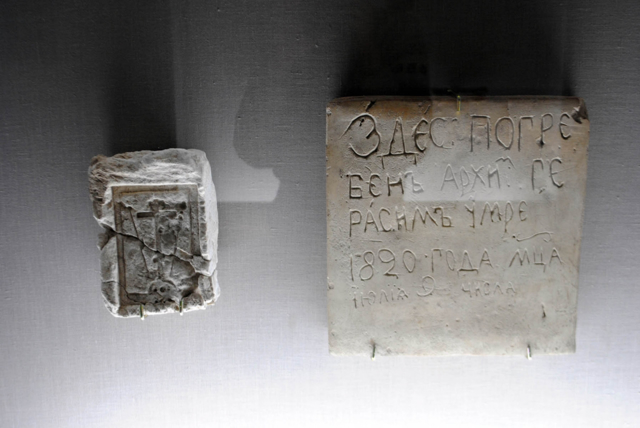 ЗДЕС ПОГРЕ
БЕНЪ АРХИм ГЕ
РАСИМЪ УМРЕ
1820 ГОДА МЦА
іюлія 9 числа